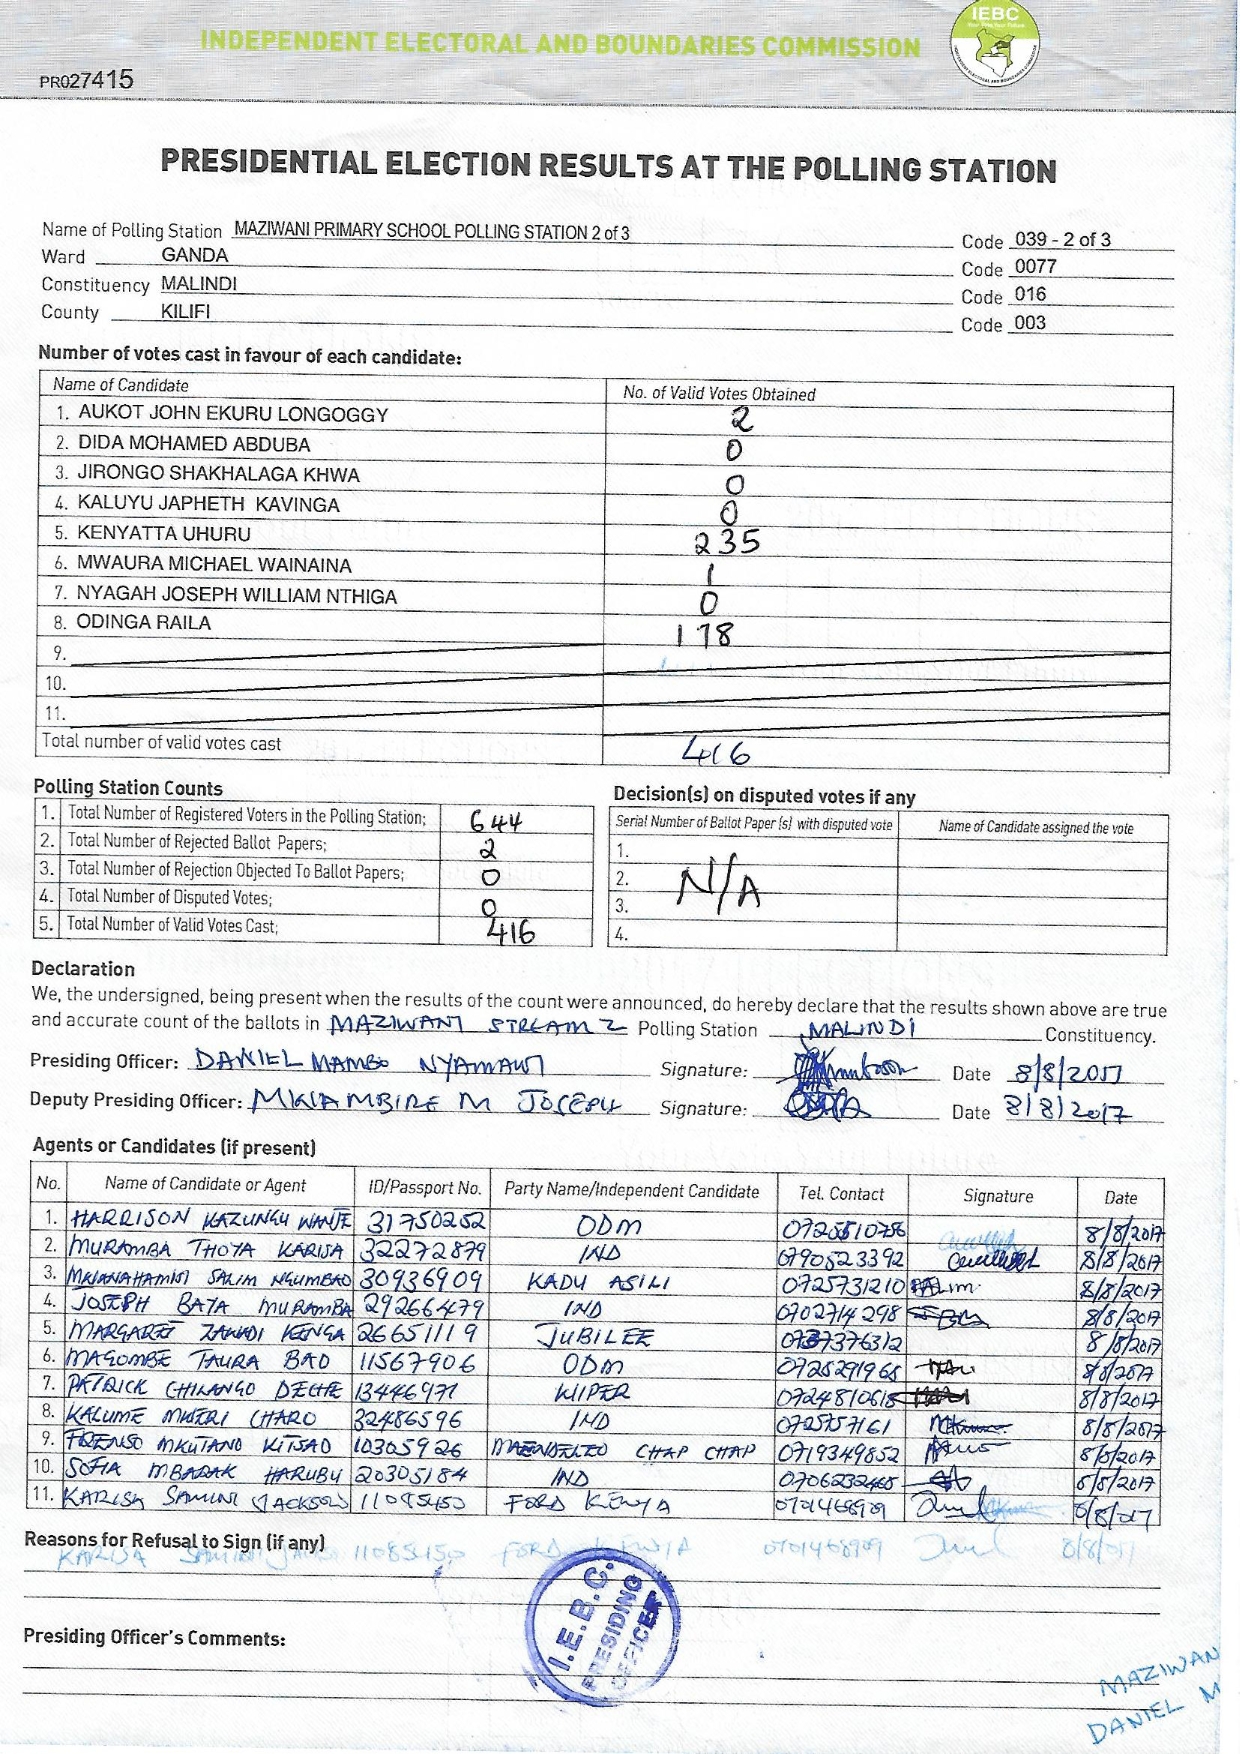 IEBC
INDEPENDENT ELECTORAL AND BOUNDARIES COMMISSION
PR027415
PRESIDENTIAL ELECTION RESULTS AT THE POLLING STATION
Name of Polling Station MAZIWANI PRIMARY SCHOOL POLLING STATION 2 of 3 Code 039 - 2 of 3
Ward GANDA Code 0077
Constituency MALINDI Code 016
County KILIFI Code 003
Number of votes cast in favour of each candidate:
Name of Candidate No. of Valid Votes Obtained
1. AUKOT JOHN EKURU LONGOGGY 2
2. DIDA MOHAMED ABDUBA 0
3. JIRONGO SHAKHALAGA KHWA 0
4. KALUYU JAPHETH KAVINGA 0
5. KENYATTA UHURU 235
6. MWAURA MICHAEL WAINAINA 1
7. NYAGAH JOSEPH WILLIAM NTHIGA 0
8. ODINGA RAILA 178
9.
10.
11.
Total number of valid votes cast 416
Polling Station Counts
1. Total Number of Registered Voters in the Polling Station; 644
2. Total Number of Rejected Ballot Papers; 2
3. Total Number of Rejection Objected To Ballot Papers; 0
4. Total Number of Disputed Votes; 0
5. Total Number of Valid Votes Cast; 416
Decision(s) on disputed votes if any
Serial Number of Ballot Paper (s) with disputed vote Name of Candidate assigned the vote
1.
2. N/A
3.
4.
Declaration
We, the undersigned, being present when the results of the count were announced, do hereby declare that the results shown above are true
and accurate count of the ballots in MAZIWANI STREAM 2 Polling Station MALINDI Constituency.
Presiding Officer: DANIEL MAMBO NYAMAWI Signature: Date 8/8/2017
Deputy Presiding Officer: MWAMBIRE M JOSEPH Signature: Date 8/8/2017
Agents or Candidates (if present)
No. Name of Candidate or Agent ID/Passport No. Party Name/Independent Candidate Tel. Contact Signature Date
1. HARRISON KAZUNGU WANJE 31750252 ODM 8/8/2017
2. MURAMBA THOYA KARISA 32272879 IND 0790523392 8/8/2017
3. SALIM NGUMBAO 30936909 KADU ASILI 0725731210 8/8/2017
4. JOSEPH BAYA MURAMBA 29266479 IND 0702714298 8/8/2017
5. MARGARET ZAWADI KENGA 26651119 JUBILEE 8/8/2017
6. MAGOMBE TAURA BAO 11567906 ODM 0725291965 8/8/2017
7. PATRICK CHILANGO DECHE 13446971 WIPER 0724810615 8/8/2017
8. KALUME MWERI CHARO 32486596 IND 0725757161 8/8/2017
9. MKUTANO KITSAO 10305926 MAENDELEO CHAP CHAP 0719349852 8/8/2017
10. SOFIA MBARAK HARUBU 20305184 IND 8/8/2017
11. KARISA SAMINI JACKSON FORD KENYA 0701468909 8/8/2017
Reasons for Refusal to Sign (if any)
KARISA SAMINI 11085150 FORD KENYA 0701468909
I.E.B.C.
PRESIDING
OFFICER
Presiding Officer's Comments:
MAZIWAN
DANIEL M